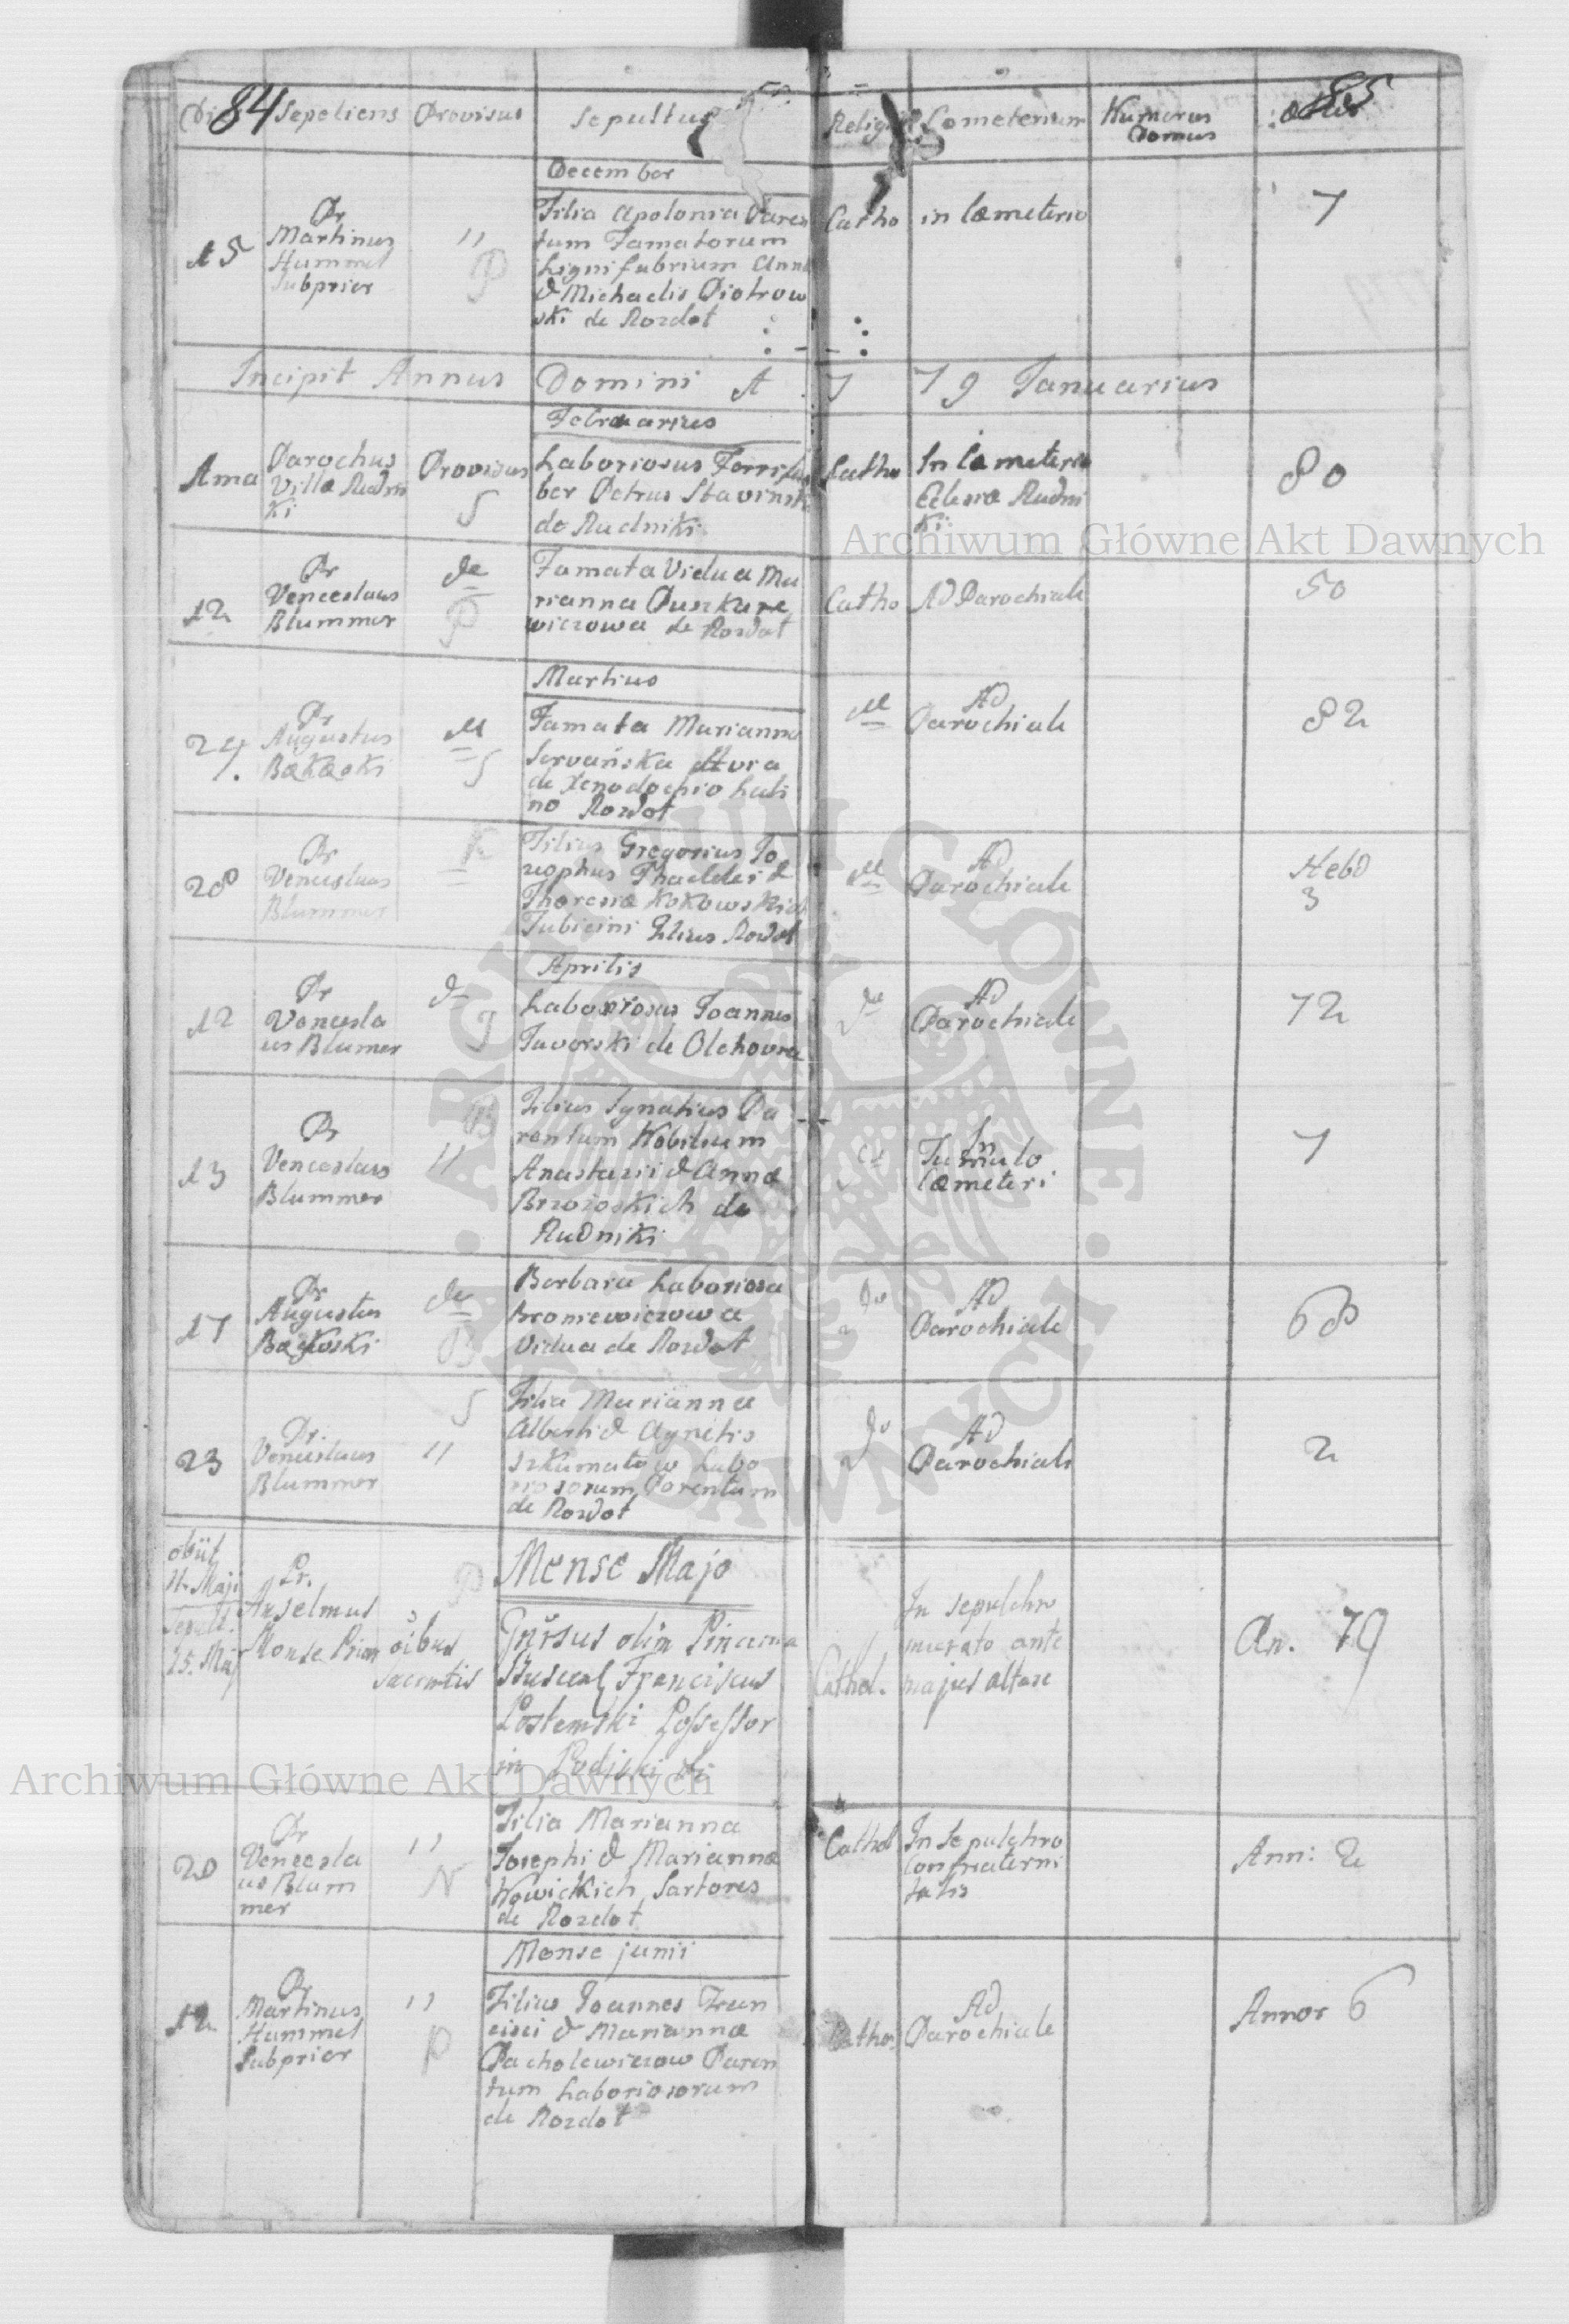 84
85
Sepeliens Provisus Sepultus Religio Cometerium Numerus
Domus
December
15
Pr
Martinus
Hummel
Subprior
"
P
Filia Apolonia Paren
tum Famatorum
Lignifabrium Anna
& Michaelis Piotrow
ski de Rozdot
Catho
in Cæmeterio
7
Incipit Annus Domini 1 7 79 Januarius
Februarius
1ma
Parochus
Villæ Rudni
ki
Provisus
S
Laboriosus Ferrifa
ber Petrus Stavinski
de Rudniki
Catho
In Cæmeterio
Rudni
ki
80
12
Pr
Venceslaus
Blummer
de
P
Famata Vidua Ma
rianna Puszkare
wiczowa de Rozdot
Catho
Ad Parochiale
50
Martius
24.
Pr
Augustus
Bakaski
S
Famata Marianna
Servańska
de Xenodochio Lati
no Rozdot
Ad
Parochiale
82
28
Pr
Venceslaus
Blummer
K
Filius Gregorius Jo
zephus Thaddei &
Theresiæ Kokowskich
Tubicini Filius Rozdot
Ad
Parochiale
Hebd
3
Aprilis
12
Pr
Vencesla
us Blumer
J
Laboriosus Joannes
Javorski de Olchovca
Ad
Parochiale
72
13
Pr
Venceslaus
Blummer
"
B
Filius Ignatius Pa
rentum Nobilium
Anastazii & Annæ
Brzozoskich de
Rudniki
In
Tumulo
Cæmeteri
7
17
Pr
Augustus
Bakoski
de
B
Barbara Laboriosa
Broniewiczowa
Vidua de Rozdot
do
Ad
Parochiale
68
23
Pr.
Venceslaus
Blummer
"
S
Filia Marianna
Alberti & Agnetis
Szkumatow Labo
riosorum Parentum
de Rozdot
do
Ad
Parochiale
2
Mense Majo
obiit
Maji
Sepult.
15. Maj
Pr.
Anselmus
P
oibus
Sacrmtis
Gnrsus olim Pincerna
Buscens Franciscus
Postemski Possessor
in
Cathol.
In sepulchro
murato ante
majus altare
An. 79
20
Pr
Vencesla
us Blum
mer
"
N
Filia Marianna
Josephi & Mariannæ
Nowickich Sartores
de Rozdot
Cathol
In Sepulchro
Confraterni
tatis
Ann: 2
Mense junii
12
Pr
Martinus
Hummel
Subprior
"
P
Filius Joannes Fran
cisci & Mariannæ
Pacholewiczow Paren
tum Laboriosorum
de Rozdot
Cathol
Ad
Parochiale
Annor 6
Archiwum Główne Akt Dawnych
Archiwum Główne Akt Dawnych
ARCHIWUM GŁÓWNE AKT DAWNYCH